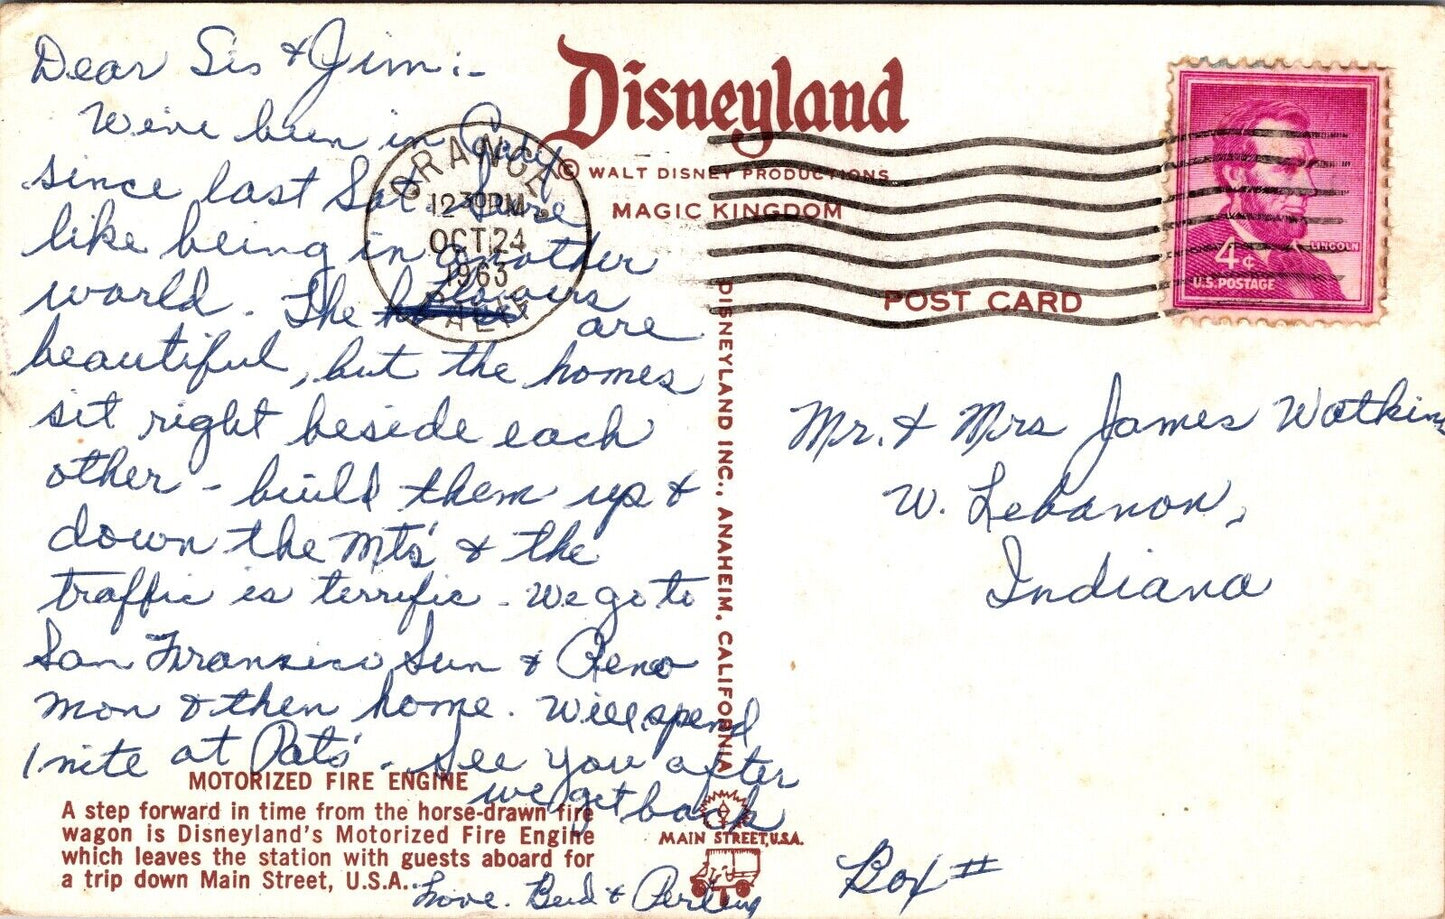 Dear Sis & Jim:-
We've been in Calif
since last Sat. Sure
like being in another
world. The flowers are
beautiful, but the homes
sit right beside each
other - build them up &
down the Mt's & the
traffic is terrific - We go to
San Fransisco Sun & Reno
Mon & then home. Will spend
1 nite at Pats' - See you after
we get back
Love. Bud &
Disneyland
© WALT DISNEY PRODUCTIONS
MAGIC KINGDOM
POST CARD
ORANGE
12-30PM
OCT 24
1963
CALIF
LINCOLN
4¢
U.S. POSTAGE
DISNEYLAND INC., ANAHEIM, CALIFORNIA
Mr. & Mrs James Watkins
W. Lebanon,
Indiana
Box #
MOTORIZED FIRE ENGINE
A step forward in time from the horse-drawn fire
wagon is Disneyland's Motorized Fire Engine
which leaves the station with guests aboard for
a trip down Main Street, U.S.A.
MAIN STREET, U.S.A.